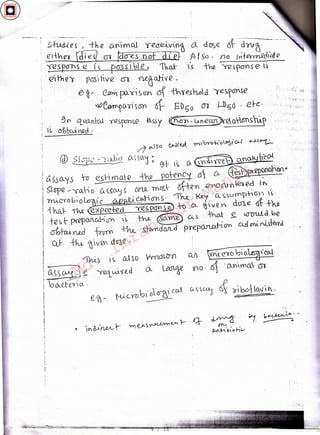 studies, the animal receiving a dose of drug
either dies or does not die. Also, no intermediate
response is possible. That is the response is
either positive or negative.
eg - Comparison of threshold response
Comparison of ED50 or LD50. etc.
In quantal response assay non-linear relationship
is obtained.
→ also called microbiological assay
④ Slope-ratio assay: It is a indirect analytical
assays to estimate the potency of a test preparation.
Slope-ratio assays are most often encountered in
microbiologic applications. The key assumption is
that the expected response to a given dose of the
test preparation is the same as that it would be
obtained from the standard preparation administered
at the given dose.
This is also known as microbiological
assay. required a large no. of animal or
bacteria.
eg - Microbiological assay of riboflavin.
• indirect measurement of drug by bacteria.
or
antibiotic